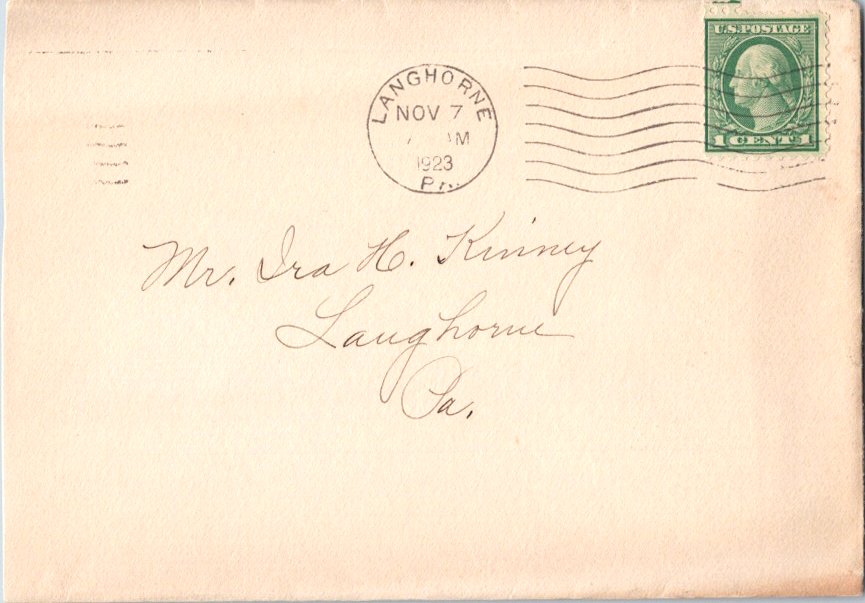 U.S. POSTAGE
1 CENT 1
LANGHORNE
NOV 7
M
1923
PA.
Mr. Ira H. Kinney
Langhorne
Pa.